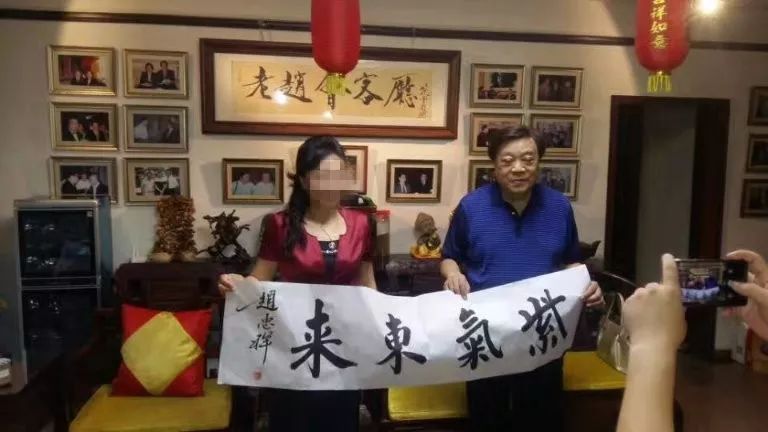 老趙會客廳
吉祥如意
紫氣東来
趙忠祥